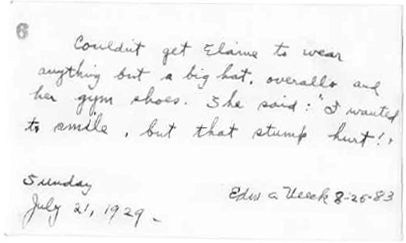 6
Couldn't get Elaine to wear
anything but a big hat, overalls and
her gym shoes. She said: "I wanted
to smile, but that stump hurt!"
Sunday
July 21, 1929 -
Edw a 8-25-83